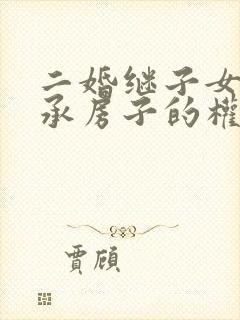 二婚继子女
承房子的權
賈頎